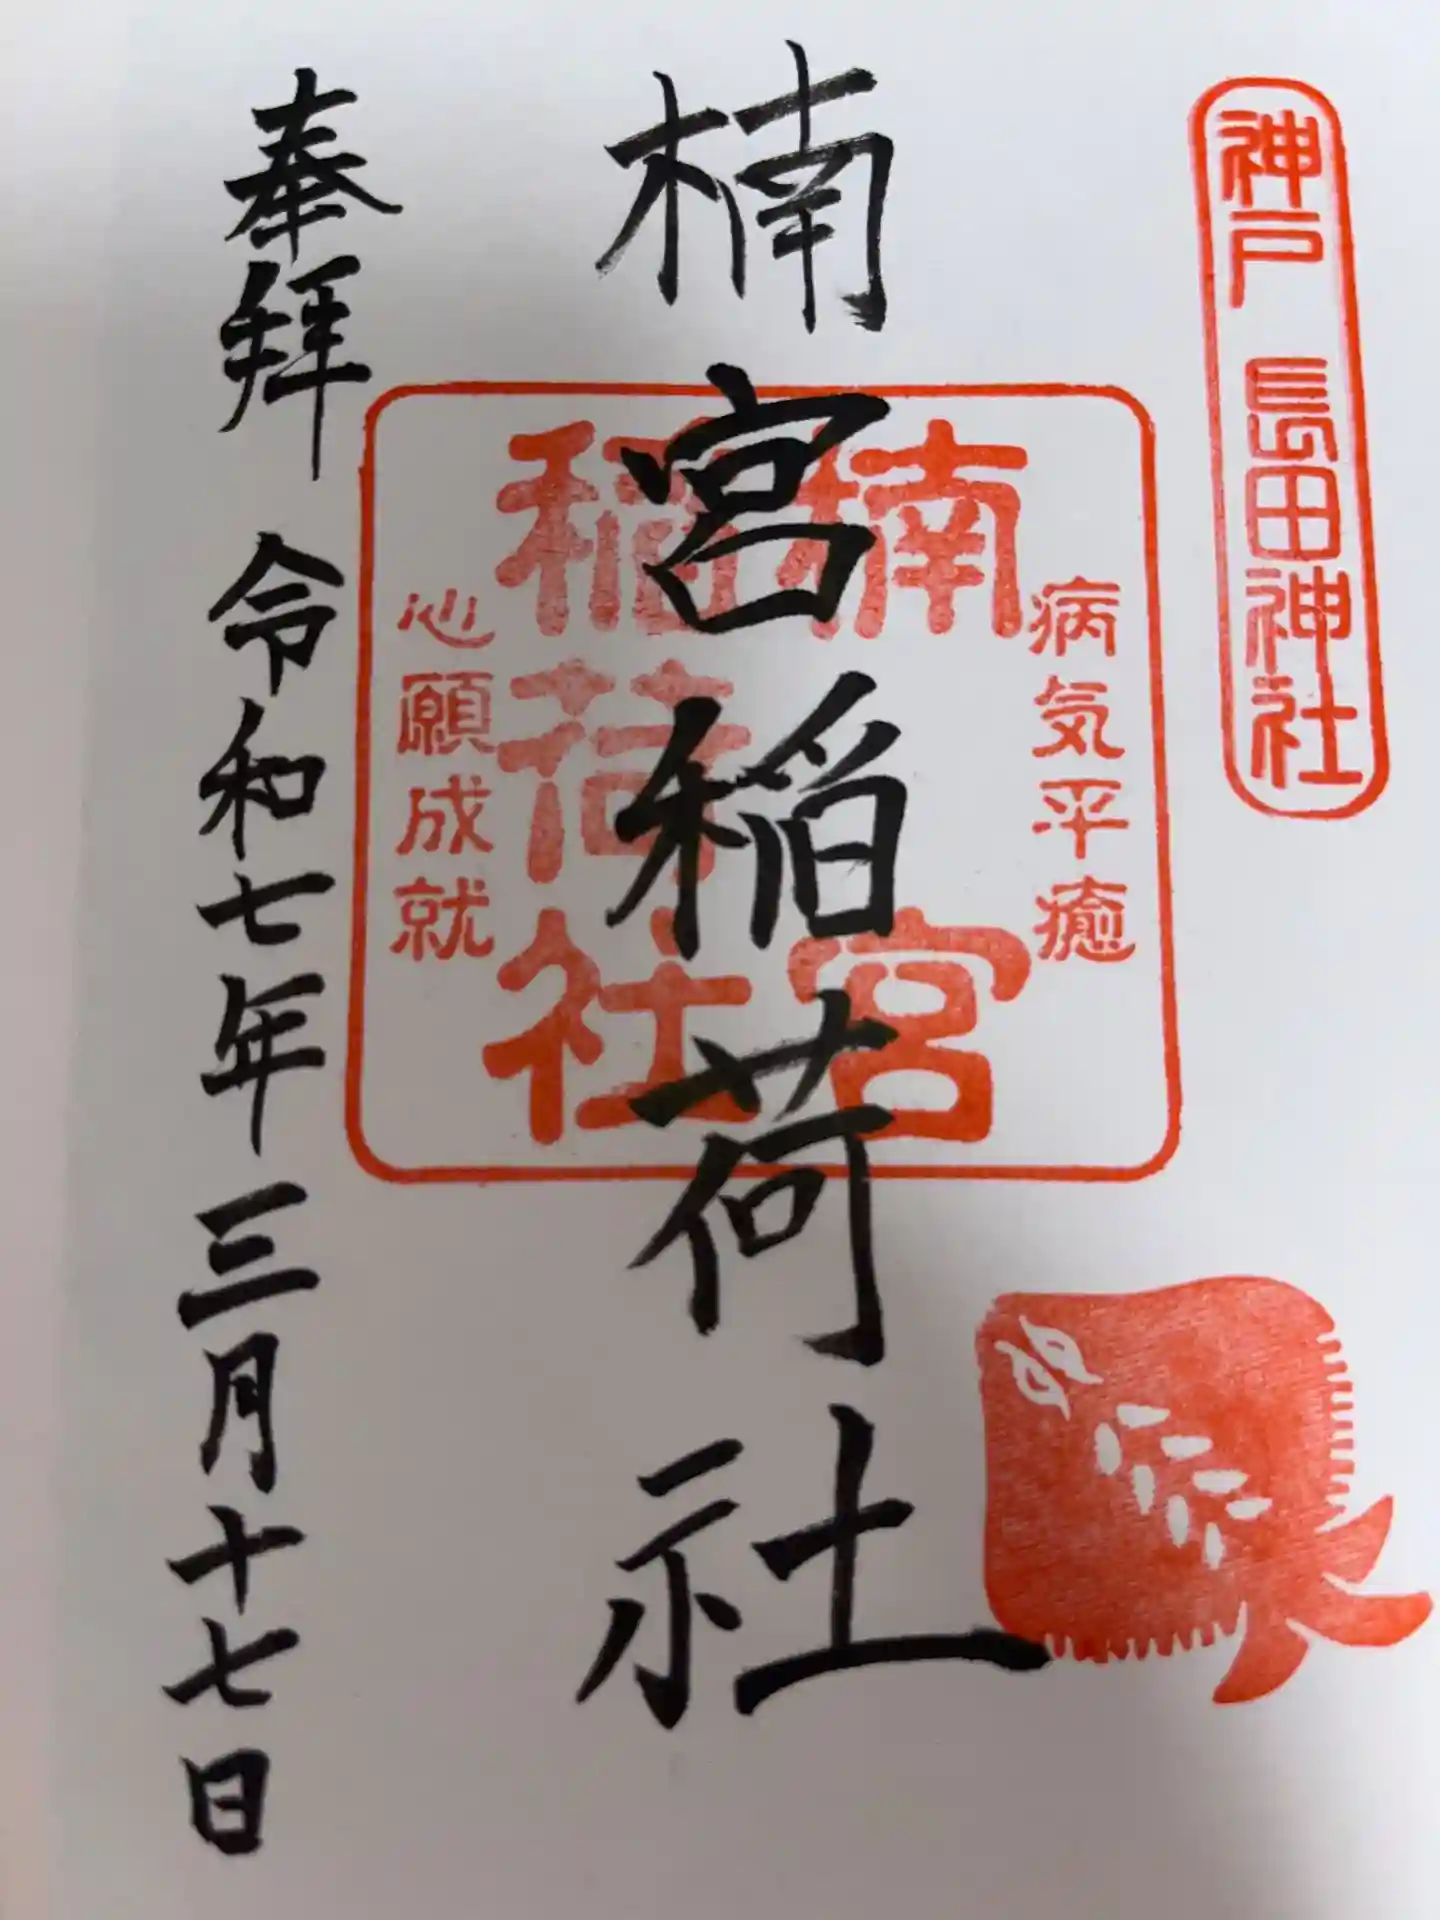 神戸 長田神社
病気平癒
楠宮
稲荷社
心願成就
楠宮稲荷社
奉拝 令和七年三月十七日